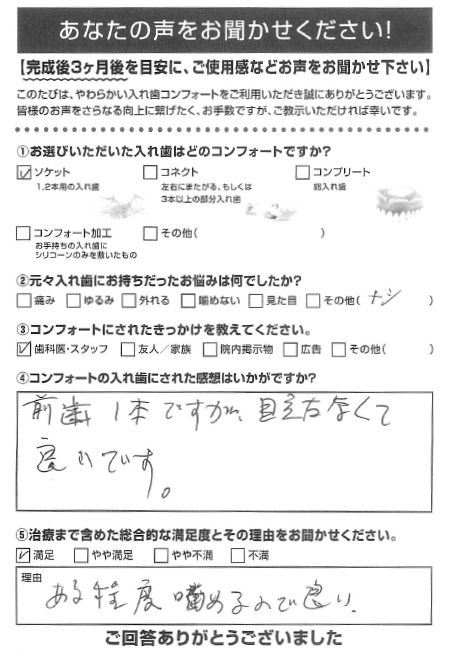 あなたの声をお聞かせください!
【完成後3ヶ月後を目安に、ご使用感などお声をお聞かせ下さい】
このたびは、やわらかい入れ歯コンフォートをご利用いただき誠にありがとうございます。
皆様のお声をさらなる向上に繋げたく、お手数ですが、ご教示いただければ幸いです。
①お選びいただいた入れ歯はどのコンフォートですか?
☑ソケット □コネクト □コンプリート
1,2本用の入れ歯 左右にまたがる、もしくは 総入れ歯
3本以上の部分入れ歯
□コンフォート加工 □その他( )
お手持ちの入れ歯に
シリコーンのみを敷いたもの
②元々入れ歯にお持ちだったお悩みは何でしたか?
□痛み □ゆるみ □外れる □噛めない □見た目 □その他( ナシ )
③コンフォートにされたきっかけを教えてください。
☑歯科医・スタッフ □友人/家族 □院内掲示物 □広告 □その他( )
④コンフォートの入れ歯にされた感想はいかがですか?
前歯1本ですが、目立たなくて
良いです。
⑤治療まで含めた総合的な満足度とその理由をお聞かせください。
☑満足 □やや満足 □やや不満 □不満
理由
ある程度噛めるので良い。
ご回答ありがとうございました